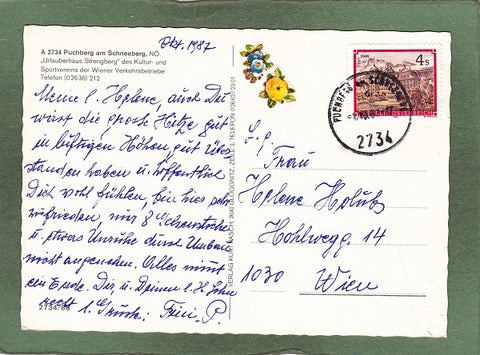 Okt. 1987
A 2734 Puchberg am Schneeberg, NÖ.
„Urlauberhaus Strengberg" des Kultur- und
Sportvereins der Wiener Verkehrsbetriebe
Telefon (02636) 212
Meine l. Helene, auch Du
wirst die große Hitze gut
in luftigen Höhen gut über
standen haben u. hoffentlich
Dich wohl fühlen, bin hier sehr
zufrieden nur
u. etwas Unruhe durch Umbau
nicht angenehm. Alles nimmt
ein Ende. Dir u. Deinem l. H. Sohn
recht l. Grüße: Frieda P.
2734/86
VERLAG KURT RASCH, 2640 GLOGGNITZ, ZEILE 3, TELEFON 02662/23 01
4 S
REPUBLIK ÖSTERREICH
PUCHBERG AM SCHNEEBERG
2734
Frau
Helene Holub
Hohlwegg. 14
1030 Wien